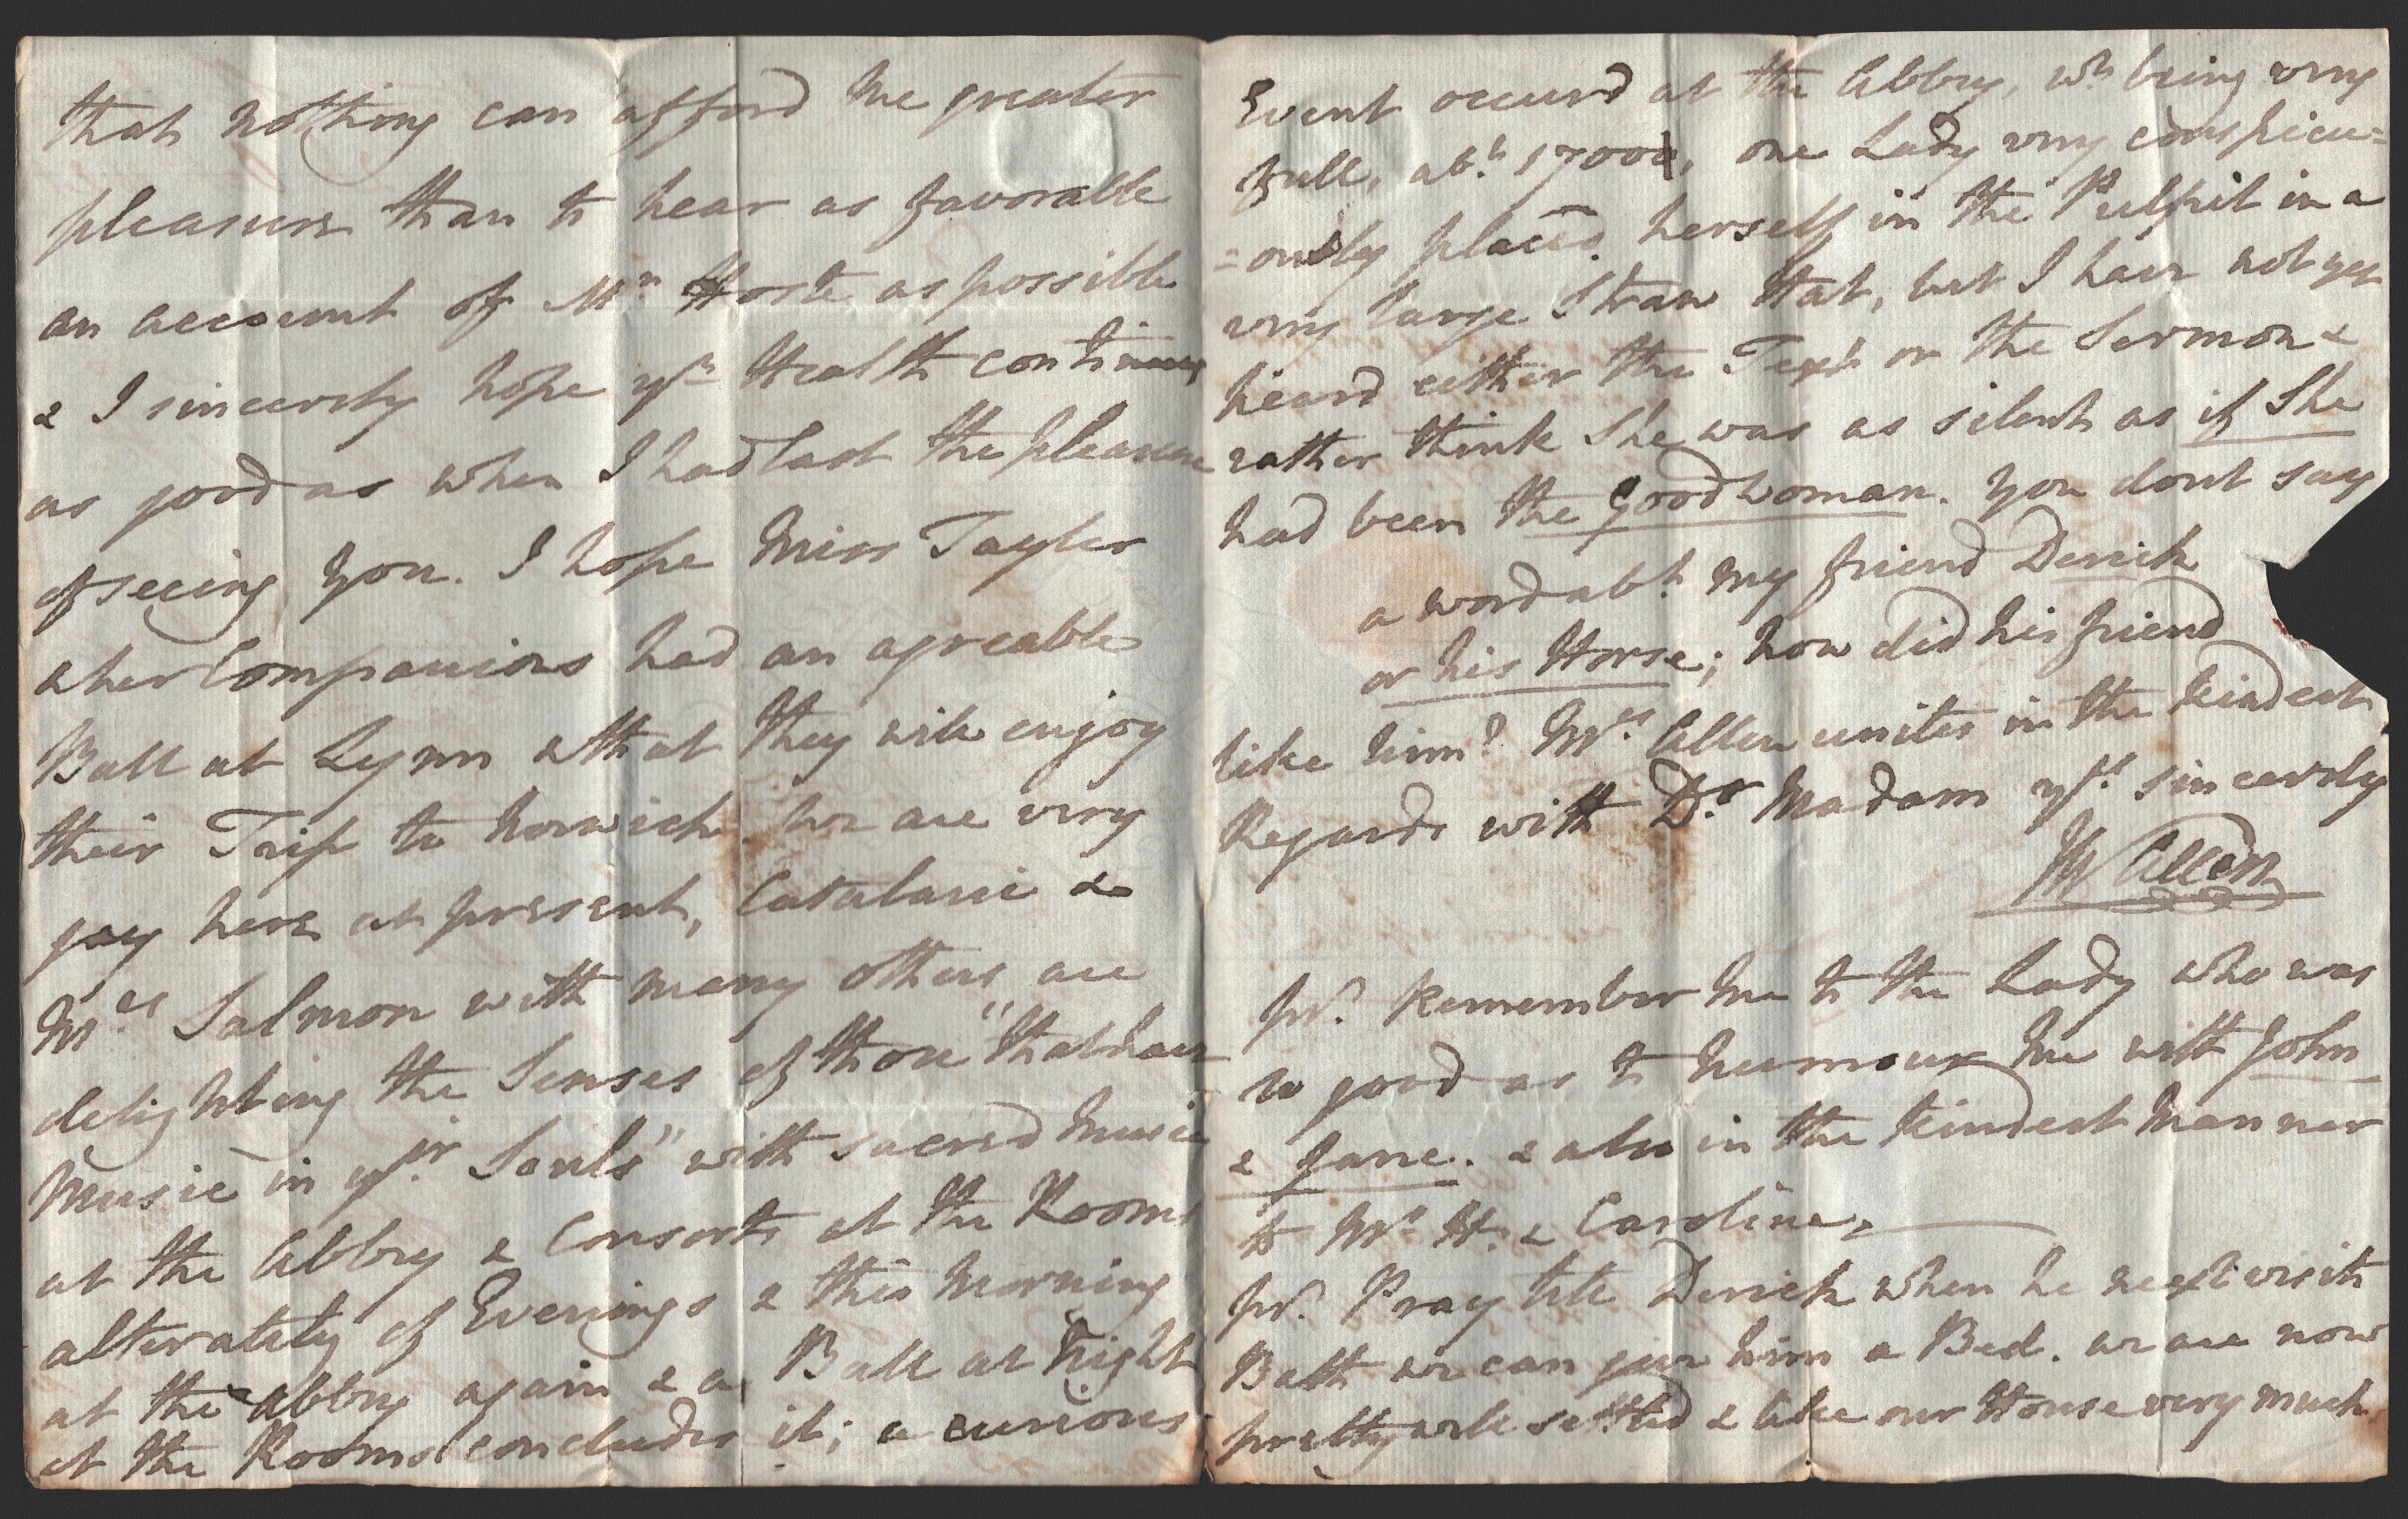 that nothing can afford me greater
pleasure than to hear as favorable
an account of Mr. Hoste as possible
& I sincerely hope yr. Health continues
as good as when I had last the pleasure
of seeing you. I hope Miss Tayler
& her Companions had an agreable
Ball at Lynn & that they will enjoy
their Trip to Norwich. We are very
gay here at present, Catalani &
Mrs. Salmon with many others are
delighting the Senses of those "that have
Music in yir. Souls" with sacred Music
at the Abbey & Consorts at the Rooms
alterately of Evenings & this Morning
at the Abbey again & a Ball at Night
at the Rooms concludes it; a curious
Event occurd at the Abbey, wh. being very
full, abt. 1700, one Lady very conspicu=
=ously placed herself in the Pulpit in a
very large Straw Hat, but I have not yet
heard either the Text or the Sermon &
rather think She was as silent as if She
had been the Good Woman. You dont say
a word abt. my friend Derick
or his Horse; how did his friend
like him? Mrs. Allen unites in the kindest
Regards with Dr. Madam yrs. sincerely
W Allen
ps. Remember me to the Lady who was
so good as to humour me with John
& Jane. & also in the kindest Manner
to Mr. H. & Caroline.
ps. Pray tell Derick when he next visits
Bath we can give him a Bed. we are now
pretty well settled & like our House very much